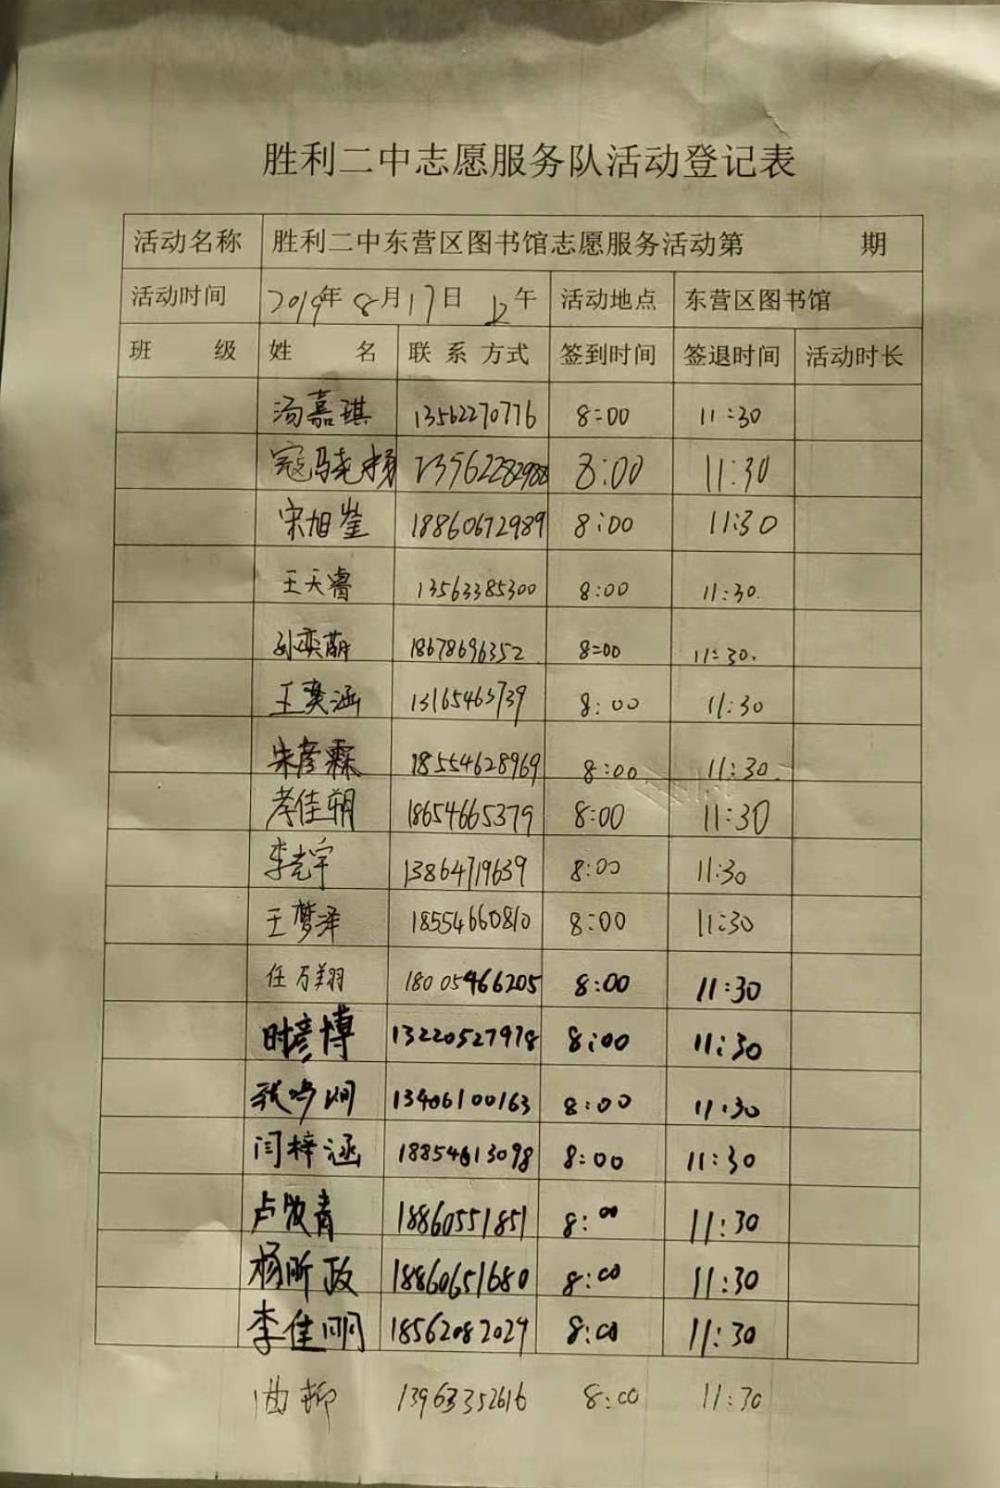 胜利二中志愿服务队活动登记表
活动名称 胜利二中东营区图书馆志愿服务活动第 期
活动时间 2019年8月17日 上午 活动地点 东营区图书馆
班 级 姓 名 联系方式 签到时间 签退时间 活动时长
汤嘉琪 13562270776 8:00 11:30
寇骁杨 8:00 11:30
宋旭莹 18860672989 8:00 11:30
王天睿 13563385300 8:00 11:30
孙奕萌 18678696352 8:00 11:30.
王奕涵 13165463739 8:00 11:30
朱彦霖 18554628969 8:00 11:30.
李佳朔 18654665379 8:00 11:30
李克宇 13864719639 8:00 11:30
王梦泽 18554660810 8:00 11:30
任万翔 18005466205 8:00 11:30
时彦博 13220527978 8:00 11:30
张 13406100163 8:00 11:30
闫梓涵 18854613098 8:00 11:30
卢 青 18860551851 8:00 11:30
杨昕政 18860651680 8:00 11:30
李佳明 18562082029 8:00 11:30
曲柳 13963352616 8:00 11:30